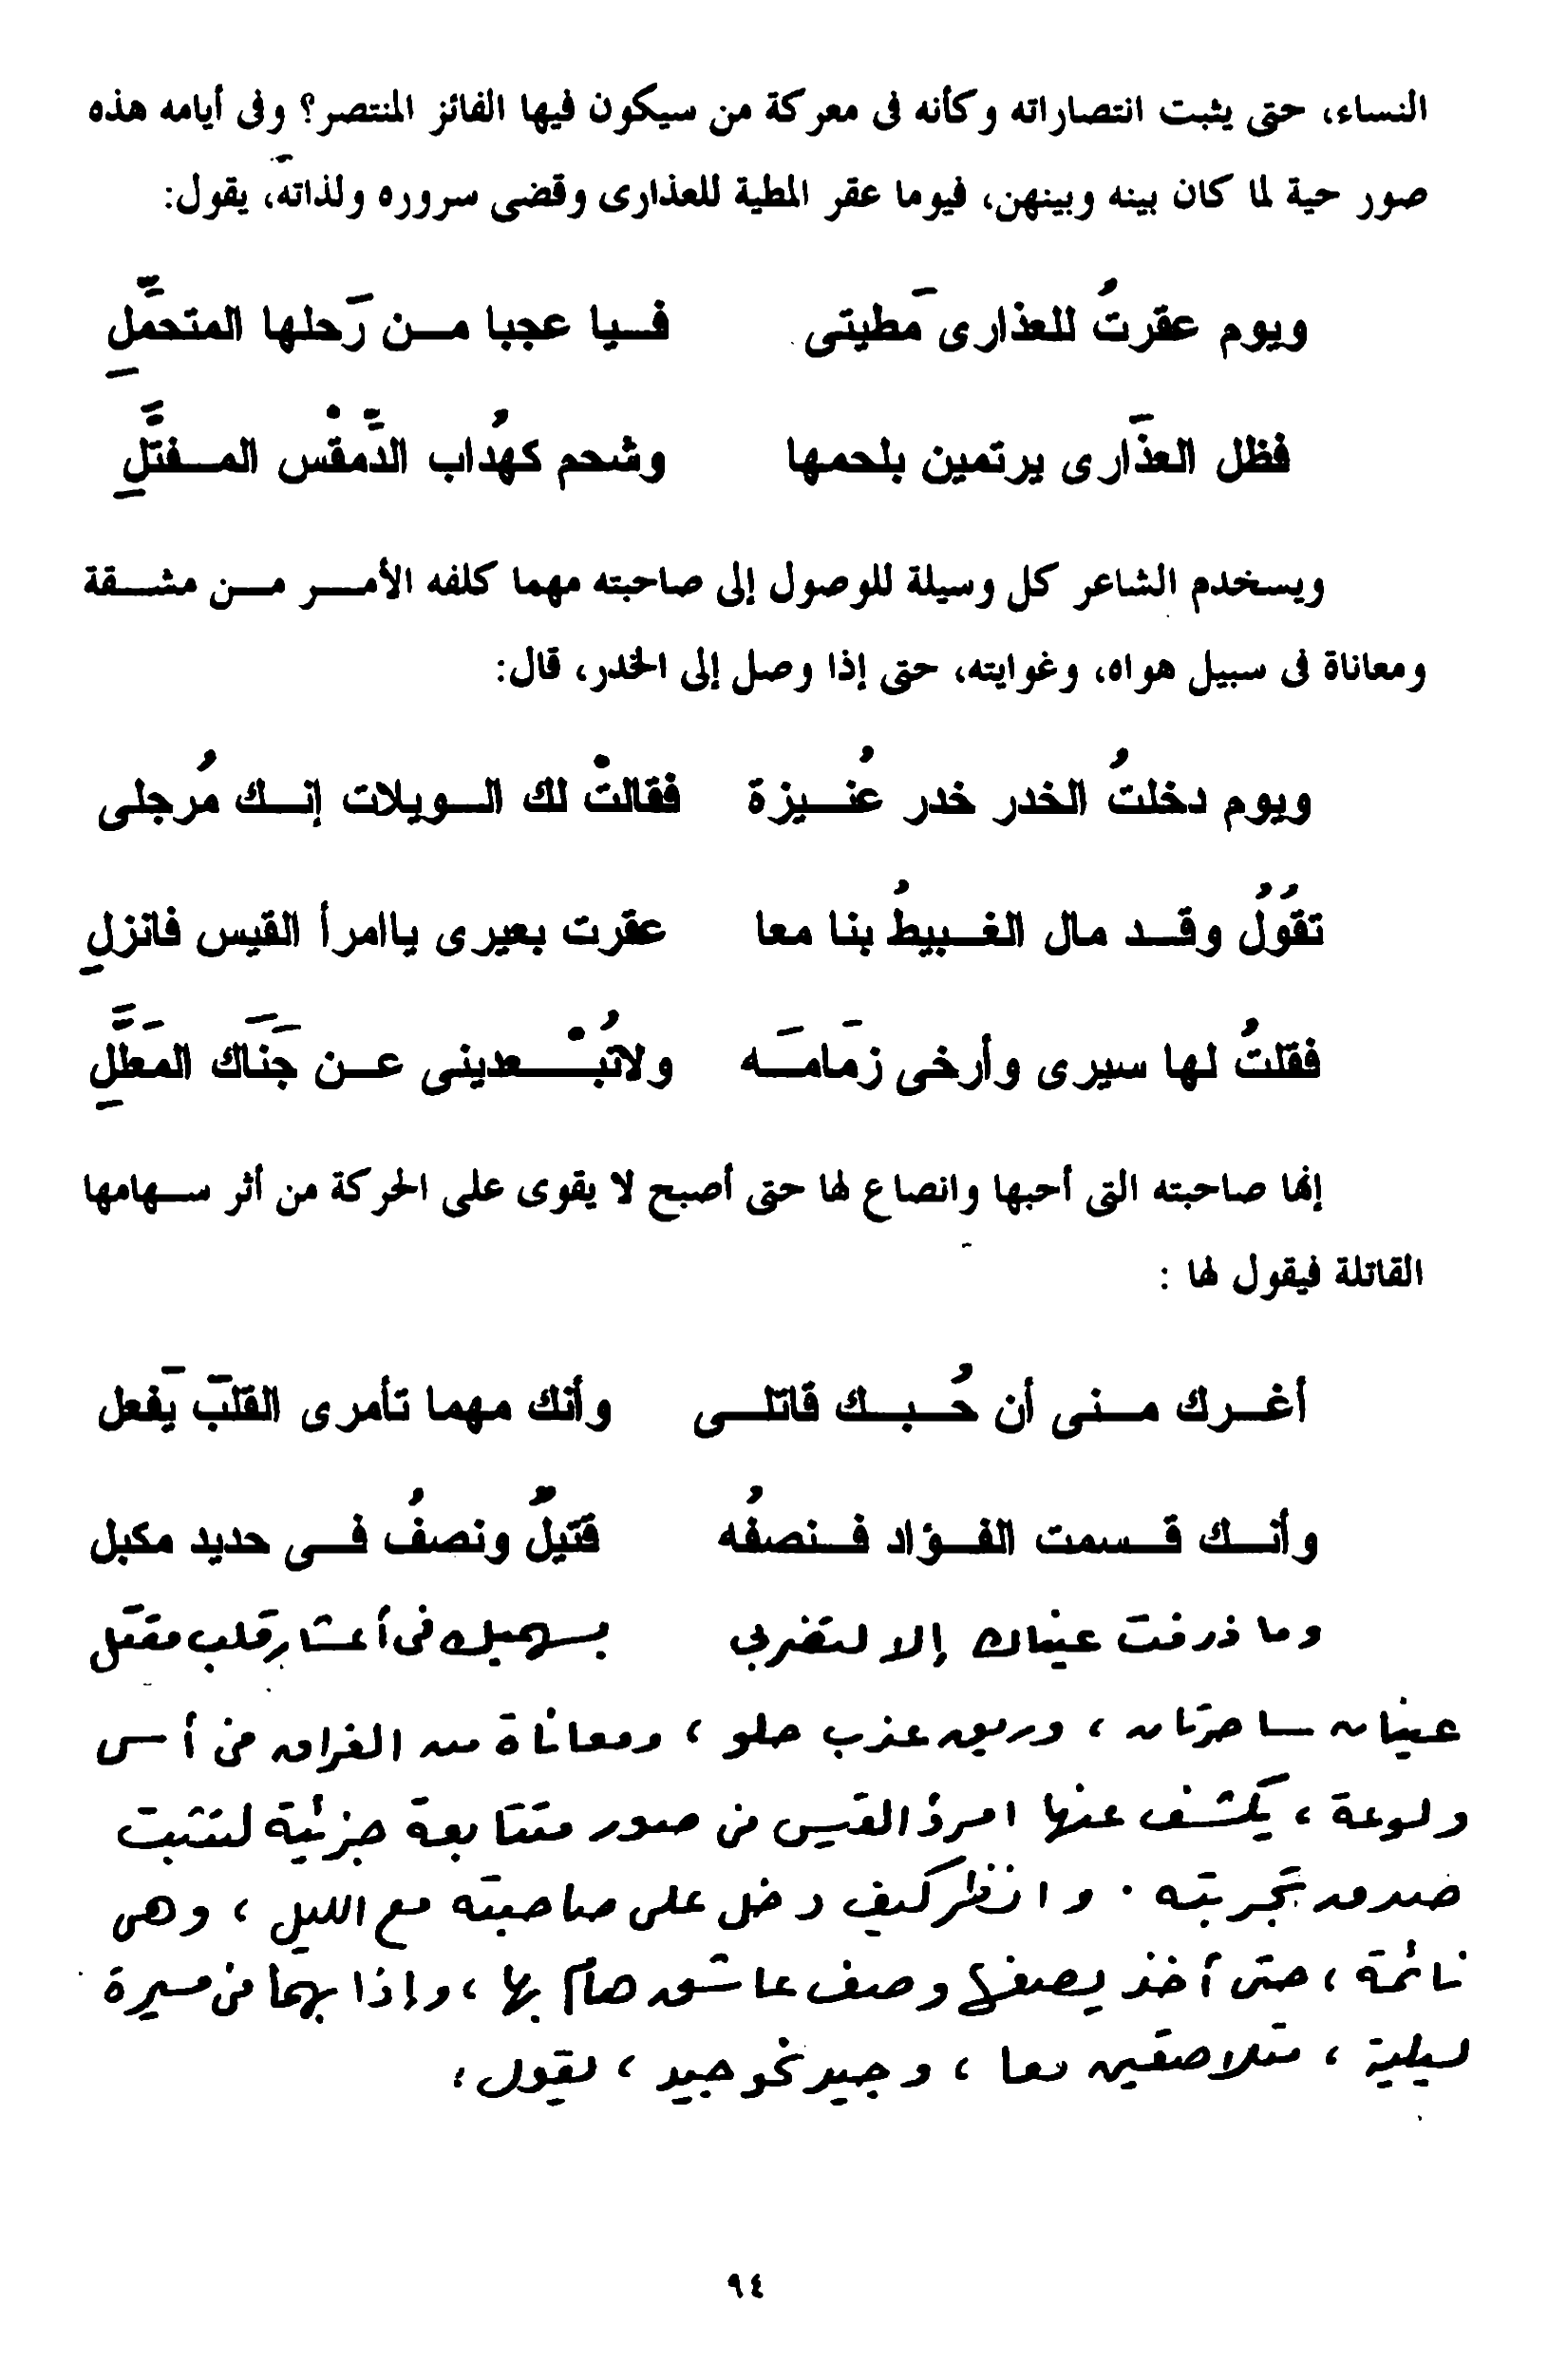 النساء، حتى يثبت انتصاراته وكأنه فى معركة من سيكون فيها الفائز المنتصر؟ وفى أيامه هذه
صور حية لما كان بينه وبينهن، فيوما عقر المطية للعذارى وقضى سروره ولذاته، يقول:
ويوم عقرتُ للعذارى مَطيتى فيا عجبا من رَحلها المتحمَّلِ
فظل العذَارى يرتمين بلحمها وشحم كهُداب الدِّمقْس المفتَّلِ
ويسخدم الشاعر كل وسيلة للوصول إلى صاحبته مهما كلفه الأمر من مشقة
ومعاناة فى سبيل هواه، وغوايته، حتى إذا وصل إلى الخدر، قال:
ويوم دخلتُ الخدر خدر عُنيزة فقالتْ لك الويلات إنك مُرجلى
تقُولُ وقد مال الغبيطُ بنا معا عقرت بعيرى ياامرأ القيس فانزلِ
فقلتُ لها سيرى وأرخى زمَامَه ولاتُبْعدينى عن جَنَاك المَعَطَّلِ
إنها صاحبته التى أحبها وانصاع لها حتى أصبح لا يقوى على الحركة من أثر سهامها
القاتلة فيقول لها :
أغرك منى أن حُبك قاتلى وأنك مهما تأمرى القلبَ يَفعل
وأنك قسمت الفؤاد فنصفُه قتيلٌ ونصفُ فى حديد مكبل
وما ذرفت عيناك إلا لتضربى بسهميك فى أعشار قلب مقتل
عينان ساحرتان ، وريق عذب حلو ، ومعاناة من الفراق فى أسى
ولوعة ، يكشف عنها امرؤ القيس فى صور متتابعة جزئية لتثبت
صدق تجربته . وانظر كيف دخل على صاحبته مع الليل ، وهى
نائمة ، حتى أخذ يصفها وصف عاشق هام بها ، وإذا بهما فى مسيرة
ليلية ، متلاصقين معا ، وجيد نحو جيد ، يقول :
٩٤